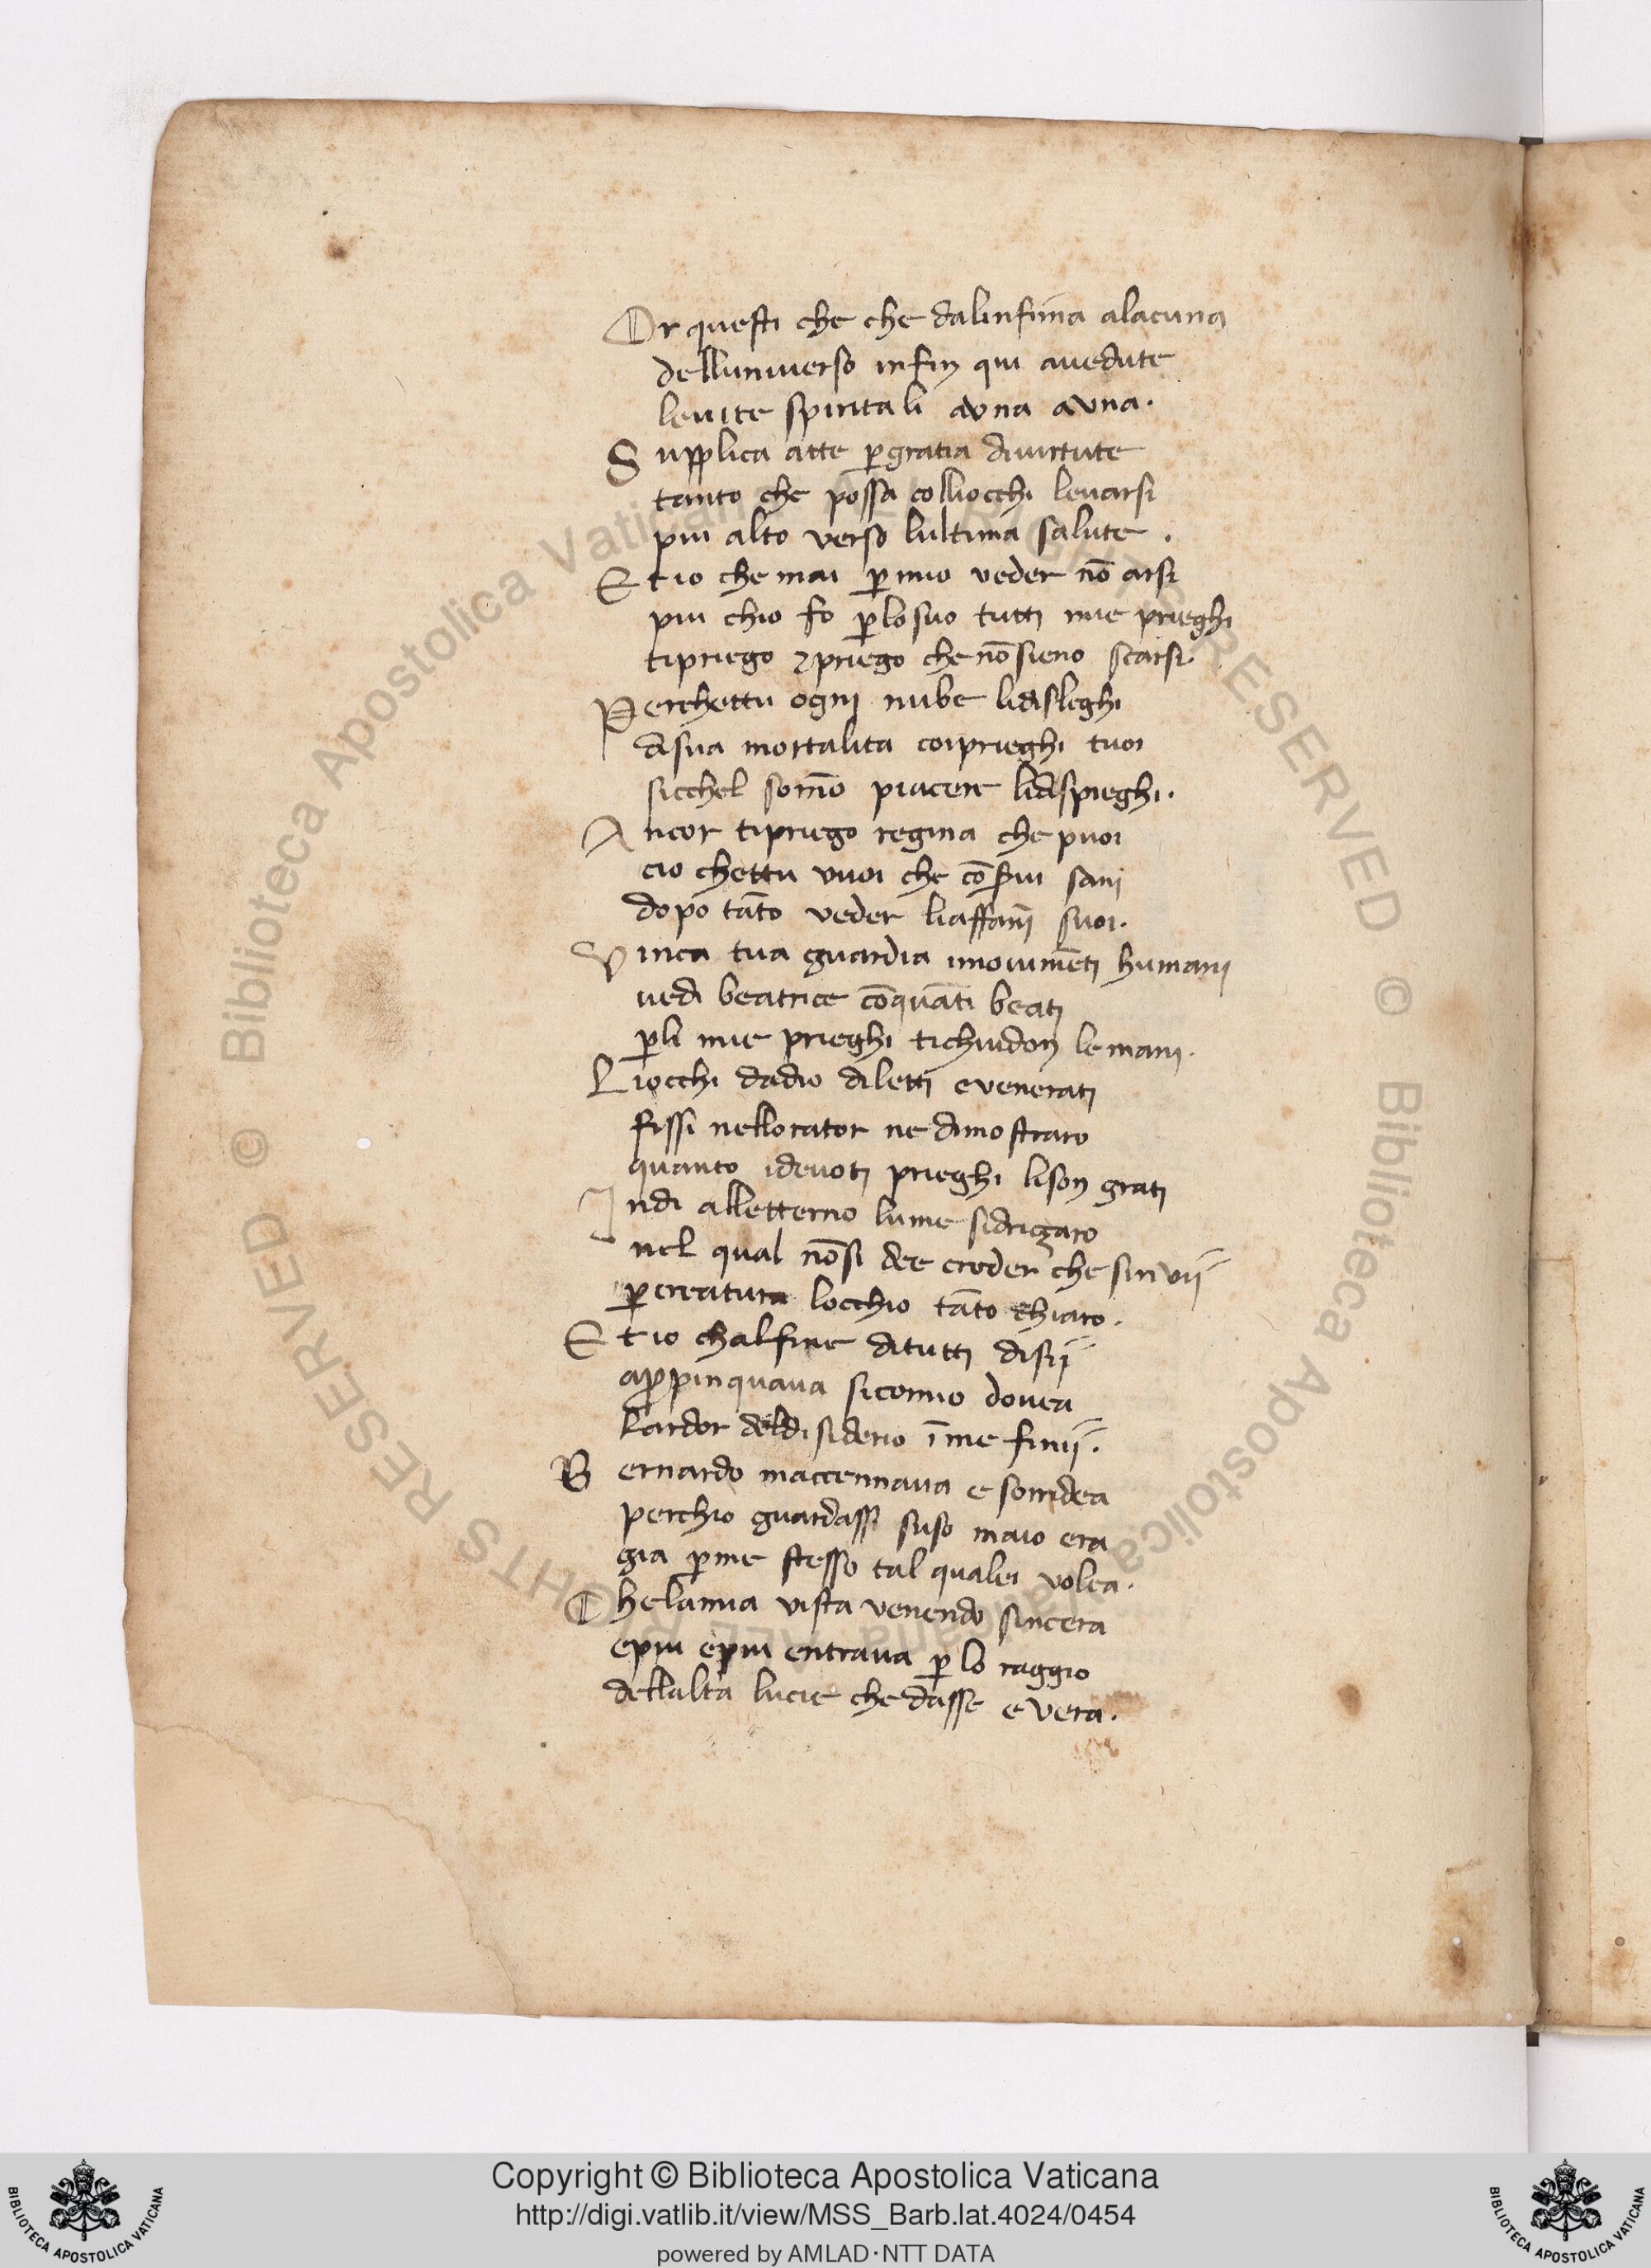 Or questi che che dalinfima alacuna
delluniuerso infin qui auedute
leuite spiritali auna auna.
Supplica atte p̱gratia diuirtute
tanto che possa colliocchi leuarsi
piu alto verso lultima salute.
Et io che mai p̱ mio veder nō arsi
piu chio fo p̱losuo tutti mie prieghi
tipriego ⁊priego che nōsieno scarsi
Perchettu ogni nube lidisleghi
disua mortalita coiprieghi tuoi
sicchel som̄o piacere lidispieghi.
Ancor tipriego regina che puoi
cio chettu vuoi che cōserui sani
dopo tāto veder liaffan̄i suoi.
Vinca tua guardia imouimēti humani
vedi beatrice cōquāti beati
p̱li mie prieghi tichiudon lemani.
Liocchi dadio diletti evenerati
fissi nellorator ne dimostraro
quanto idevoti prieghi lison grati
Indi alletterno lume sidrizaro
nel qual nōsi dee creder che sinvij
p̱creatura locchio tāto chiaro.
Et io chalfine ditutti disij
app̱pinquava sicomio dovea
lardor deldisiderio īme finij.
Bernardo maccennaua e sorridea
perchio guardassi suso maio era
gia p̱me stesso tal qualei volea.
Chelamia vista venendo sincera
epiu epiu entraua p̱ lo raggio
dellalta lucie che dasse e vera.
Biblioteca Apostolica Vaticana ALL RIGHTS RESERVED © Biblioteca Apostolica Vaticana ALL RIGHTS RESERVED ©
Copyright © Biblioteca Apostolica Vaticana
http://digi.vatlib.it/view/MSS_Barb.lat.4024/0454
powered by AMLAD·NTT DATA
BIBLIOTECA APOSTOLICA VATICANA
BIBLIOTECA APOSTOLICA VATICANA